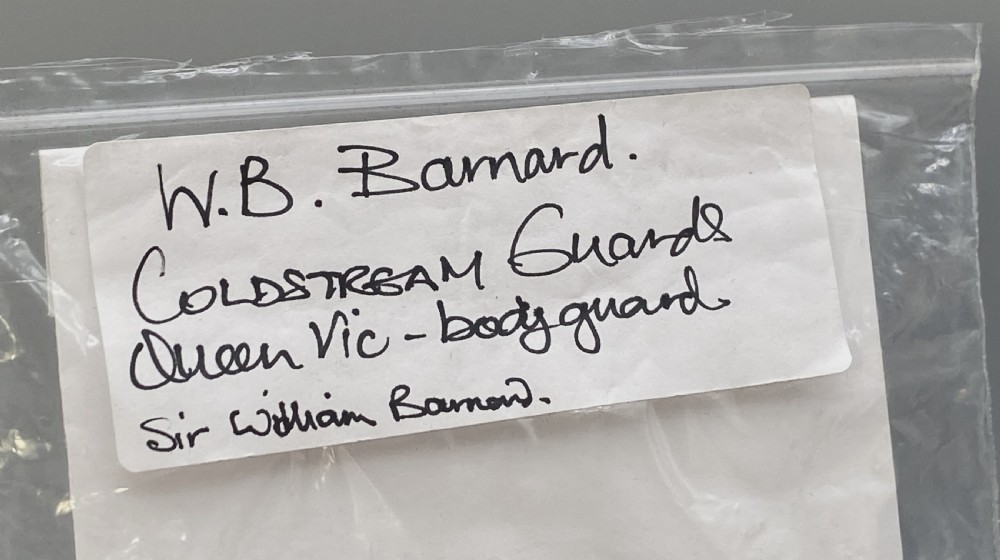 W.B. Barnard.
COLDSTREAM Guards
Queen Vic - bodyguard
Sir William Barnard.